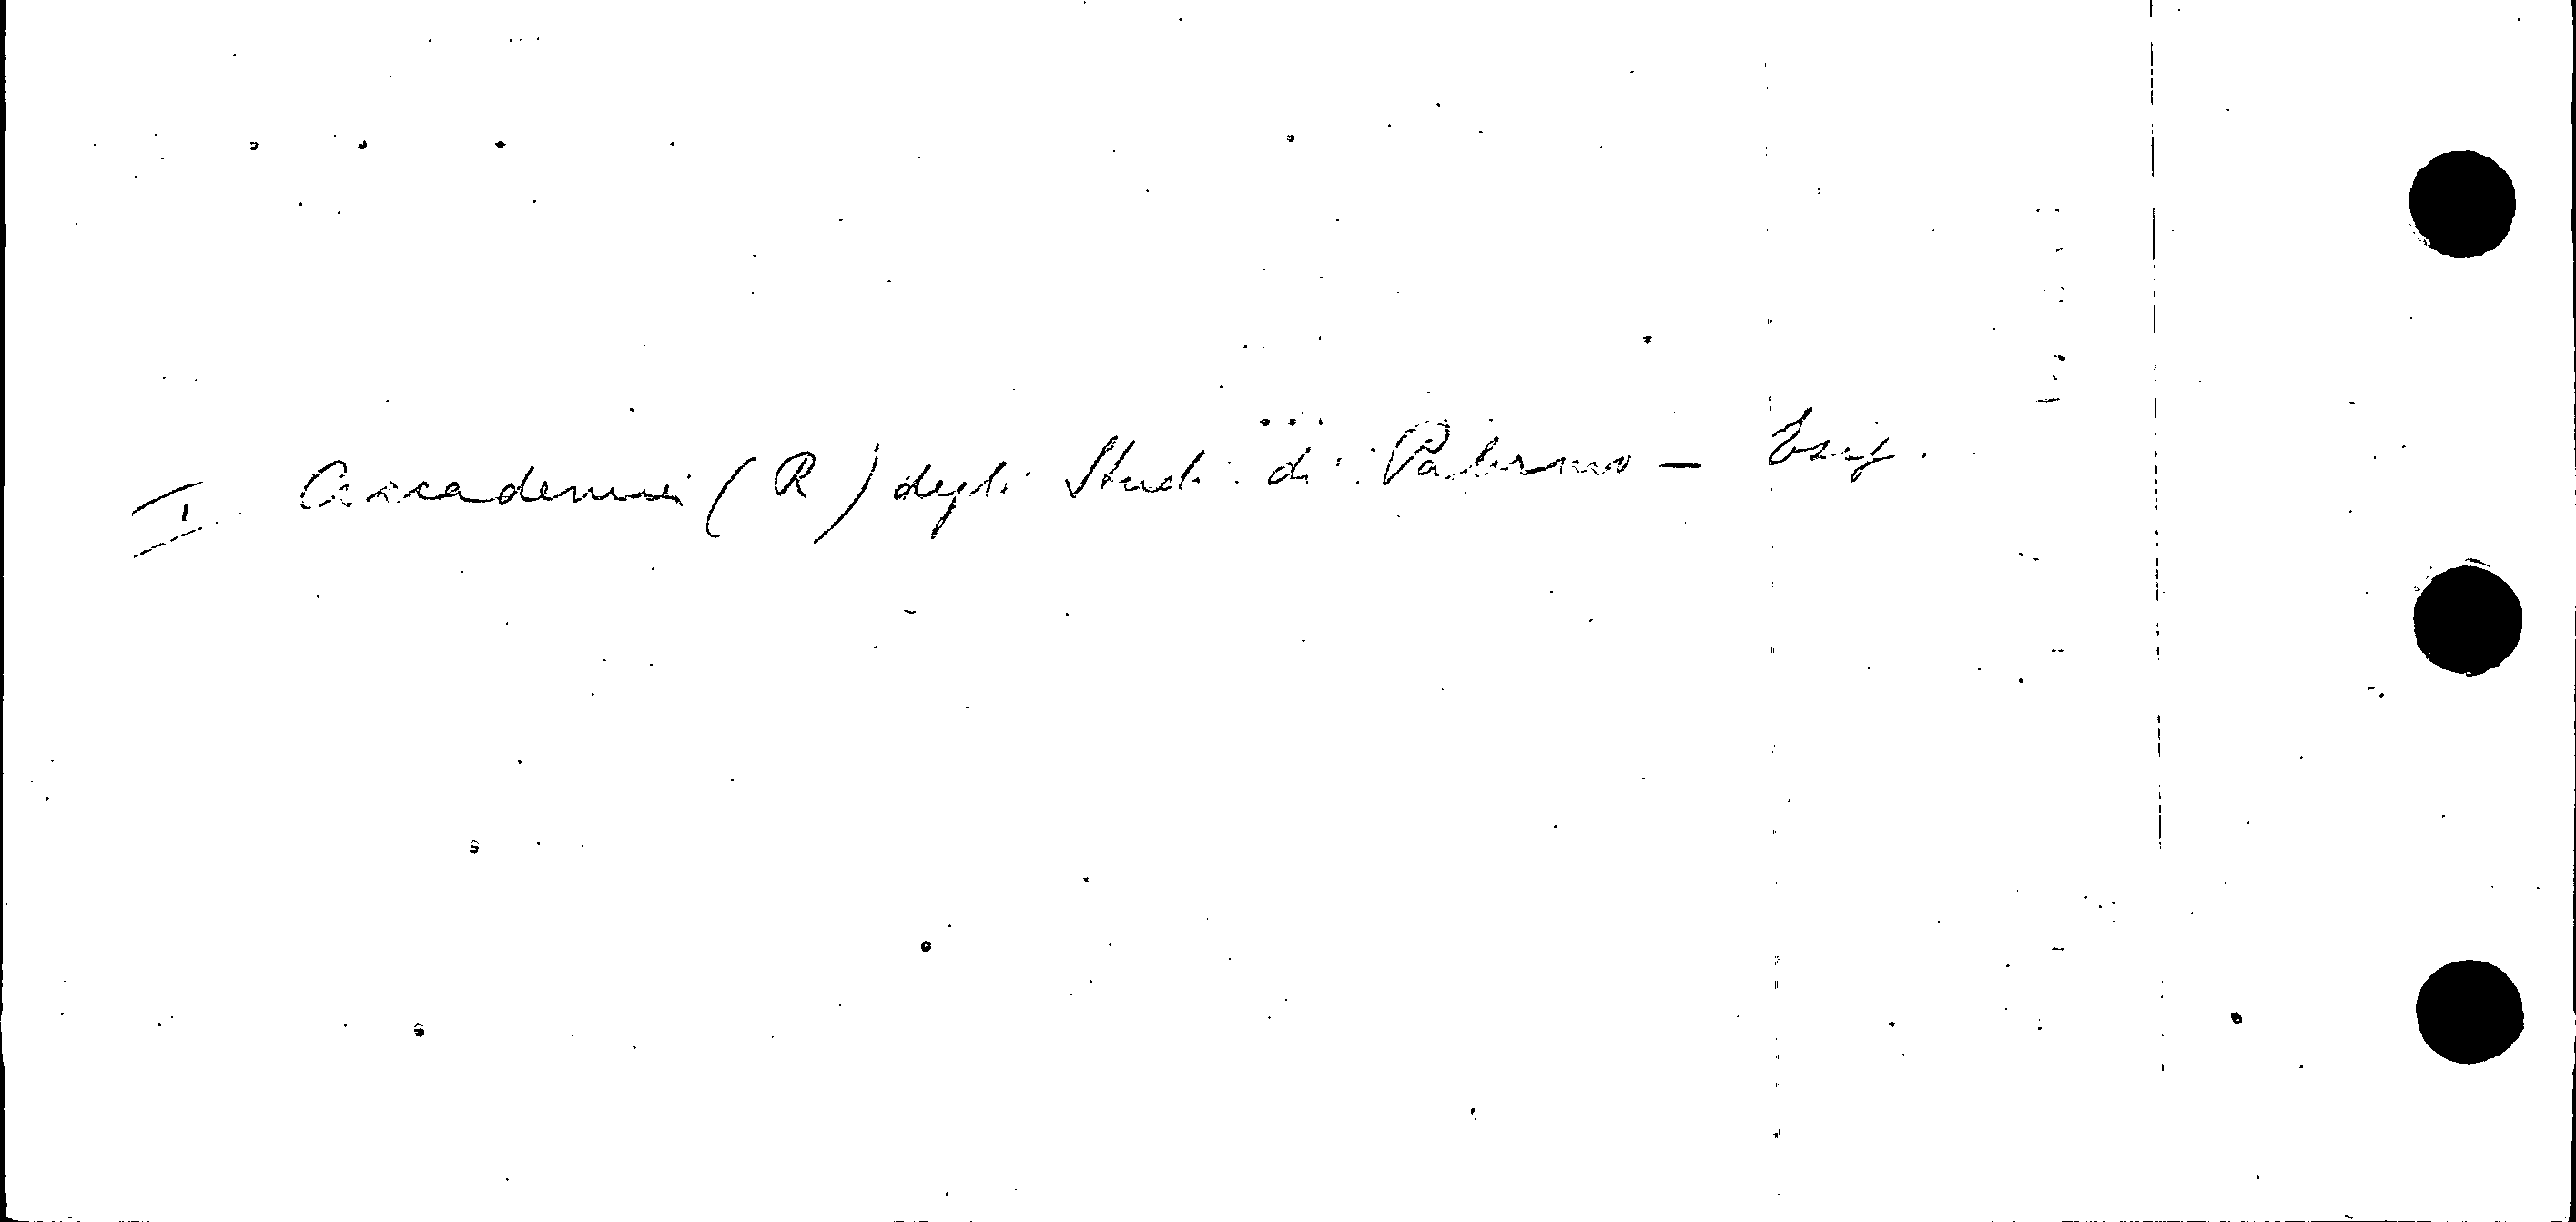 I Accademia (R) degli Studi di Palermo -